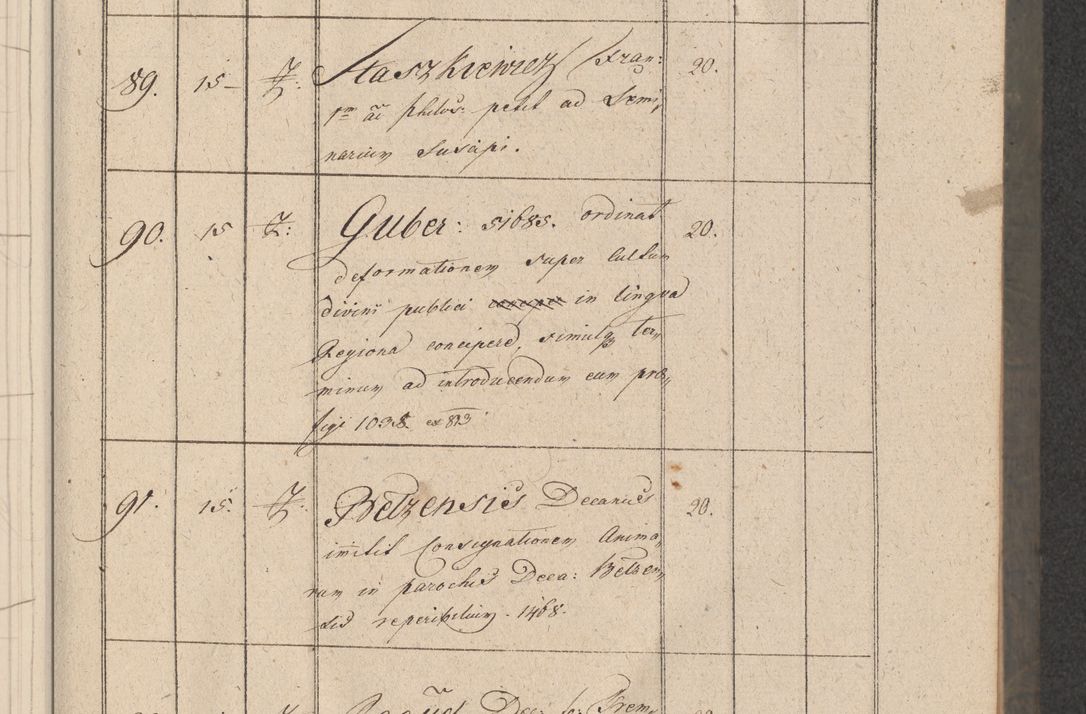 89. 15 Staszkiewicz Fran: 20.
philos: petit ad Semi,,
narium suscipi.
90. 15 Guber: 51685. ordinat 20.
deformationem super cultum
divini publici in lingva
Regiona concipere, simulq ter,,
minum ad introducendum eum prae,,
figi 1038. ex 823
91. 15. Belzensis Decanus 20.
imitit Consignationem Anima,,
rum in parochiis Deca: Belzen,,
sis reperibilium. 1468.